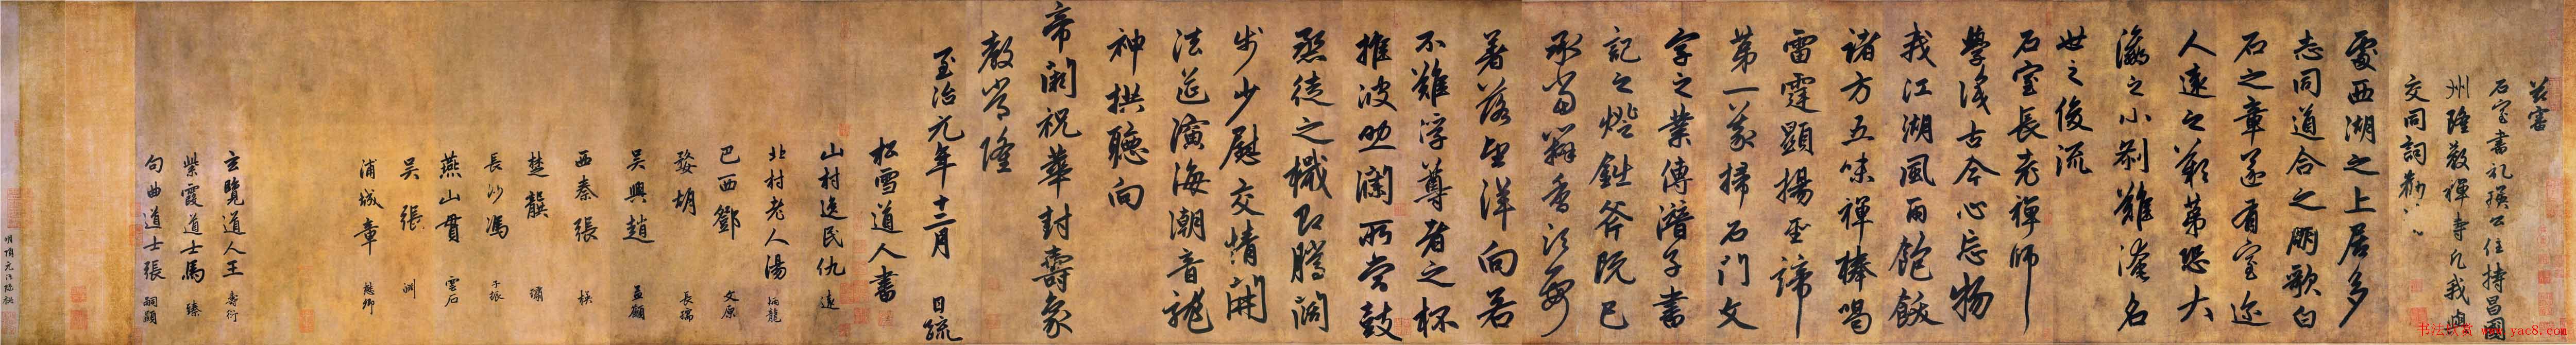 茲審
石室書記瑛公住持昌國
州隆教禪寺凡我與
交同詞勸請
處西湖之上居多
志同道合之朋歌白
石之章遂有室迩
人遠之歎第恐大
瀛之小刹難淹名
世之俊流
石室長老禪師
學識古今心忘物
我江湖風雨飽飫
諸方五味禪棒喝
雷霆顯揚聖諦
第一義掃石門文
字之業傳潛子書
記之燈銛斧既已
承當瓣香須要
著落望洋向若
不難浮尊者之杯
推波助瀾所當鼓
烝徒之檝即騰闊
步少慰交情開
法筵演海潮音龍
神拱聽向
帝闕祝華封壽象
教常隆
至治元年十二月 日疏
松雪道人書
山村逸民仇 遠
北村老人湯 炳龍
巴西鄧 文原
婺胡 長孺
吳興趙 孟頫
西秦張 楧
楚龔 璛
長沙馮 子振
燕山貫 雲石
吳張 淵
浦城章 懋卿
玄覽道人王 壽衍
紫霞道士馬 臻
句曲道士張 嗣顯
书法欣赏 www.yac8.com